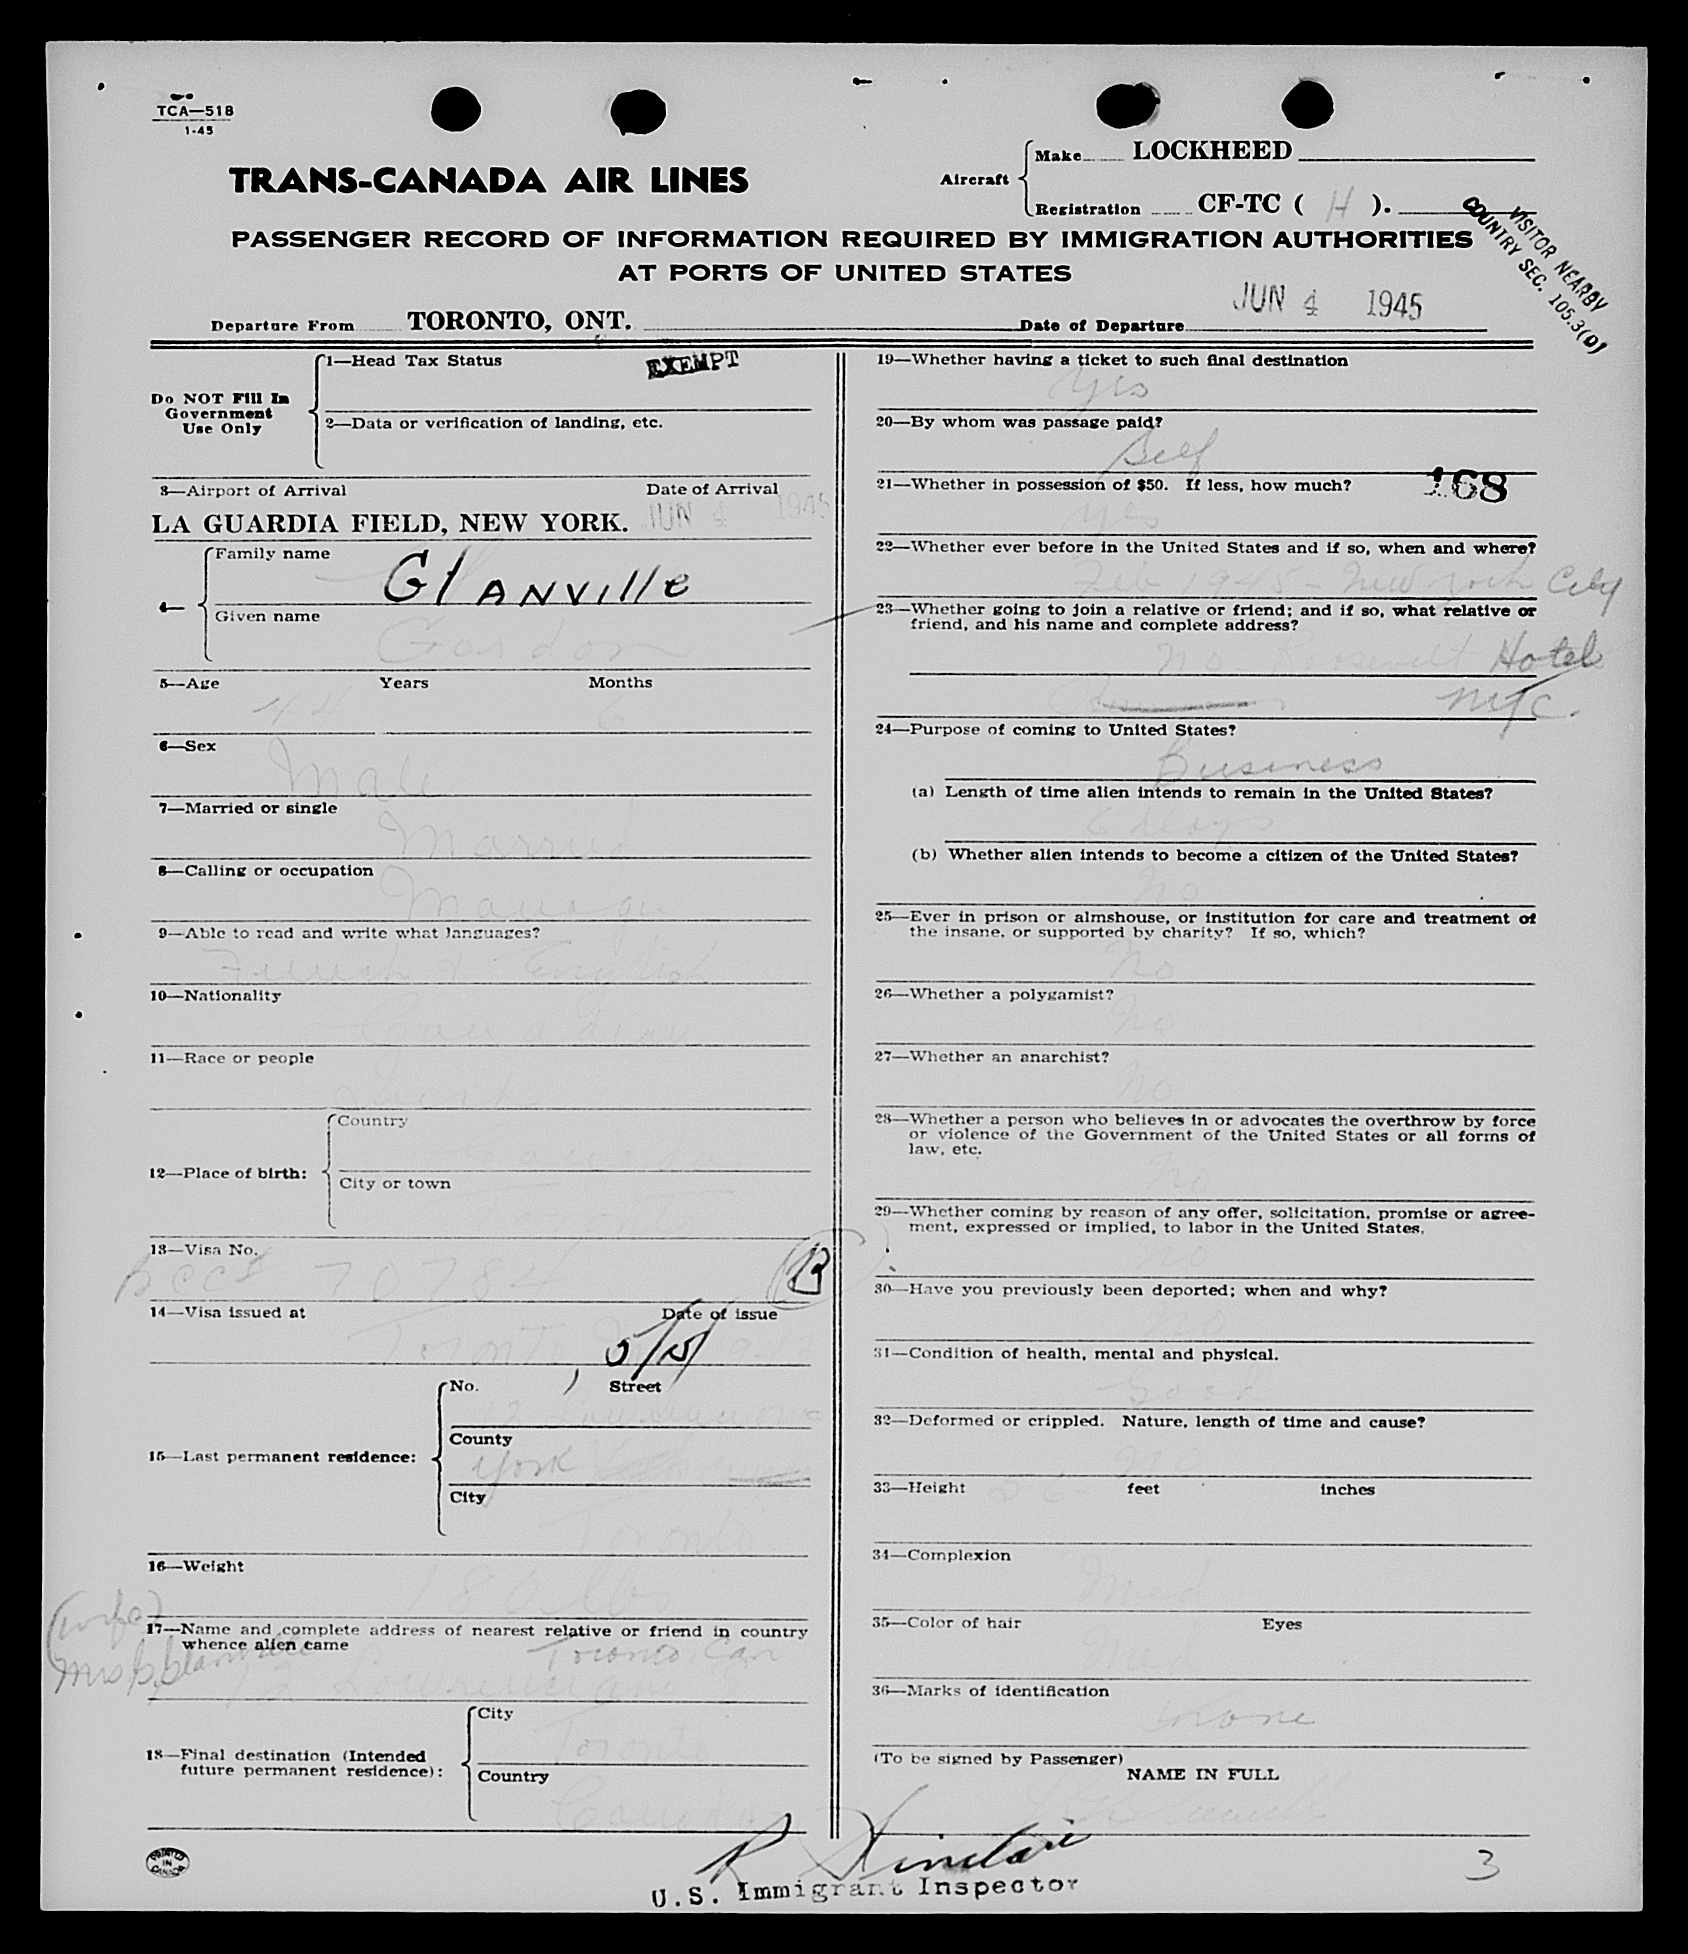 TCA—518
1-45
TRANS-CANADA AIR LINES
Aircraft
Make LOCKHEED
Registration CF-TC ( H ).
PASSENGER RECORD OF INFORMATION REQUIRED BY IMMIGRATION AUTHORITIES
AT PORTS OF UNITED STATES
VISITOR NEARBY
COUNTRY SEC. 105.3(D)
Departure From TORONTO, ONT. Date of Departure JUN 4 1945
Do NOT Fill In
Government
Use Only
1—Head Tax Status EXEMPT
2—Data or verification of landing, etc.
3—Airport of Arrival Date of Arrival
LA GUARDIA FIELD, NEW YORK. JUN 4 1945
4—
Family name
GlANVIlle
Given name
Gordon
5—Age Years Months
44 6
6—Sex
Male
7—Married or single
Married
8—Calling or occupation
Manager
9—Able to read and write what languages?
French & English
10—Nationality
Canadian
11—Race or people
12—Place of birth:
Country
Canada
City or town
13—Visa No.
BCC# 70784
B
14—Visa issued at Date of issue
Toronto
15—Last permanent residence:
No. Street
County
York
City
Toronto
16—Weight
180 lbs
17—Name and complete address of nearest relative or friend in country
whence alien came
(wife)
Mrs G. Glanville
Toronto Can
12 Lawrence Ave E
18—Final destination (Intended
future permanent residence):
City
Toronto
Country
Canada
PRINTED
IN
CANADA
19—Whether having a ticket to such final destination
Yes
20—By whom was passage paid?
Self
21—Whether in possession of $50. If less, how much? 168
Yes
22—Whether ever before in the United States and if so, when and where?
Feb 1945 - New York City
23—Whether going to join a relative or friend; and if so, what relative or
friend, and his name and complete address?
No Roosevelt Hotel
NYC.
24—Purpose of coming to United States?
Business
(a) Length of time alien intends to remain in the United States?
6 days
(b) Whether alien intends to become a citizen of the United States?
No
25—Ever in prison or almshouse, or institution for care and treatment of
the insane, or supported by charity? If so, which?
No
26—Whether a polygamist?
No
27—Whether an anarchist?
No
28—Whether a person who believes in or advocates the overthrow by force
or violence of the Government of the United States or all forms of
law, etc.
No
29—Whether coming by reason of any offer, solicitation, promise or agree-
ment, expressed or implied, to labor in the United States.
No
30—Have you previously been deported; when and why?
No
31—Condition of health, mental and physical.
Good
32—Deformed or crippled. Nature, length of time and cause?
No
33—Height feet inches
34—Complexion
Med
35—Color of hair Eyes
Med
36—Marks of identification
none
(To be signed by Passenger)
NAME IN FULL
R Sinclair
U.S. Immigrant Inspector
3